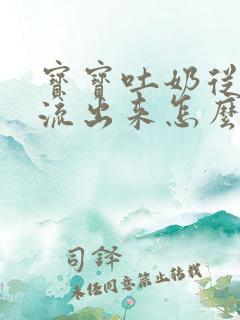 寶寶吐奶從
流出来怎麼
司鐸
未经同意禁止转载